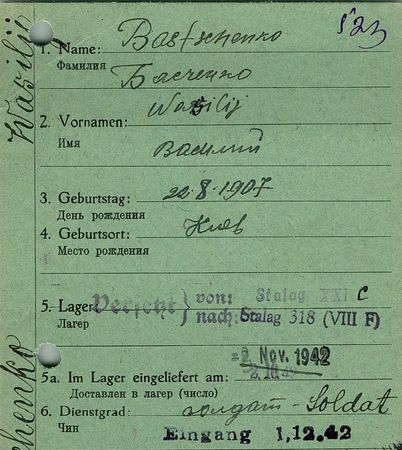 523
1. Name: Bastschenko
Фамилия
Басченко
Wasilij
2. Vornamen:
Имя
Василий
3. Geburtstag: 22.8.1907
День рождения
4. Geburtsort: Киев
Место рождения
5. Lager Versetzt } von: Stalag XXI C
Лагер nach: Stalag 318 (VIII F)
2. Nov. 1942
5a. Im Lager eingeliefert am:
Доставлен в лагер (число)
6. Dienstgrad: солдат - Soldat
Чин
Eingang 1.12.42
Wasilij